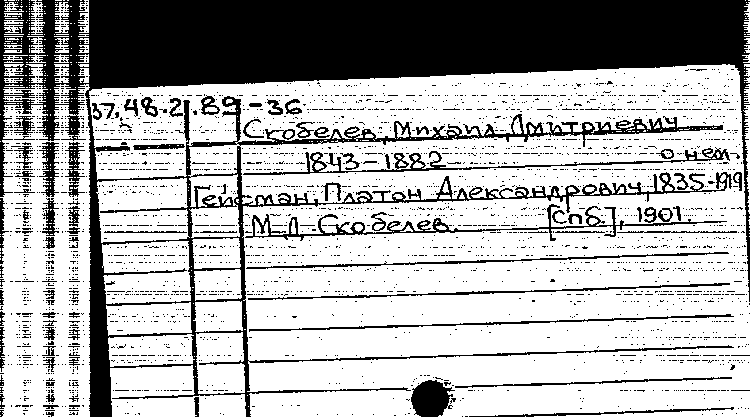 37.48.2.89-36
Скобелев, Михаил Дмитриевич
1843-1882 о нем.
Гейсман, Платон Александрович, 1835-1919
М.Д. Скобелев. [Спб.], 1901.